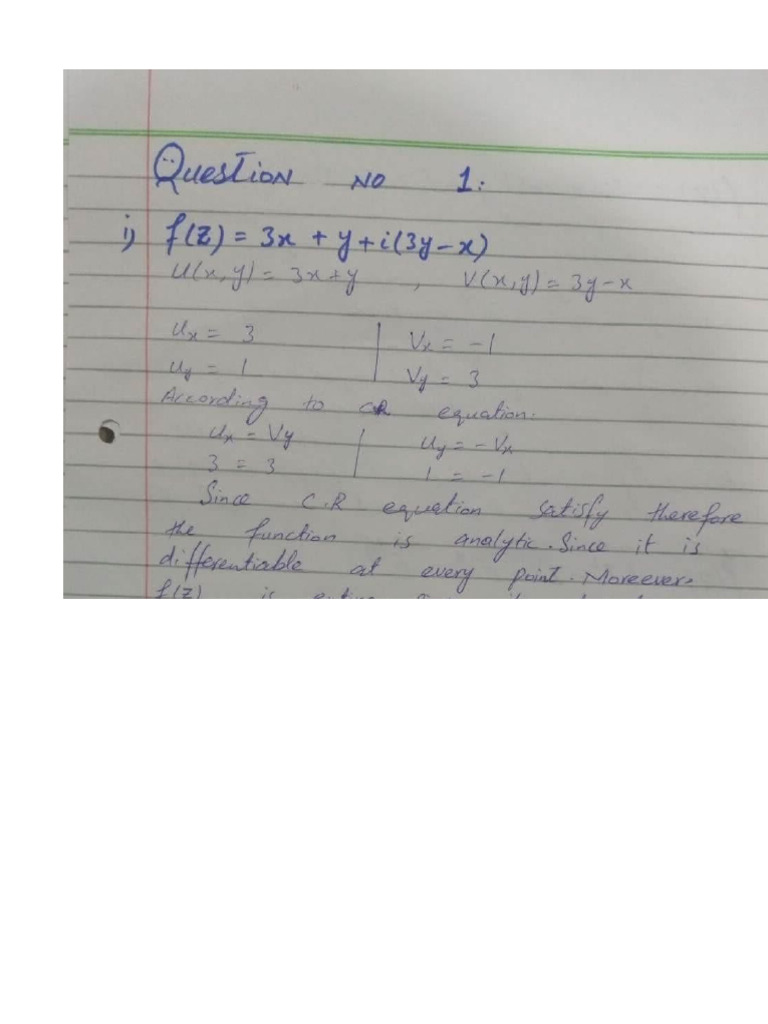 Question No 1:
i) f(z) = 3x + y + i(3y - x)
u(x,y) = 3x + y , V(x,y) = 3y - x
ux = 3 | Vx = -1
uy = 1 | Vy = 3
According to CR equation:
ux = Vy | uy = - Vx
3 = 3 | 1 = -1
Since C.R equation satisfy therefore
the function is analytic. Since it is
differentiable at every point. Moreever,
f(z) is